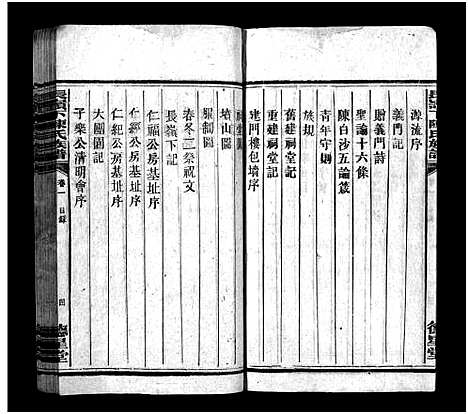 源流序
義門記
贈義門詩
聖諭十六條
陳白沙五論箴
青年守則
族規
舊建祠堂記
重建祠堂記
建門樓包墻序
祠堂圖
培山圖
春冬二祭祝文
長嶺下記
仁福公房基址序
仁經公房基址序
仁紀公房基址序
大圍圖記
子榮公清明會序
長嶺下陳氏族譜
卷一
目錄
四
德星堂
德星堂